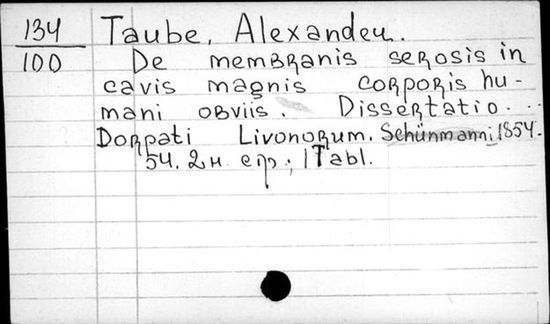 134
100
Taube, Alexander.
De membranis serosis in
cavis magnis corporis hu-
mani obviis. Dissertatio...
Dorpati Livonorum. Schünmanni, 1854.
54, 2н. стр.; 1 Tabl.